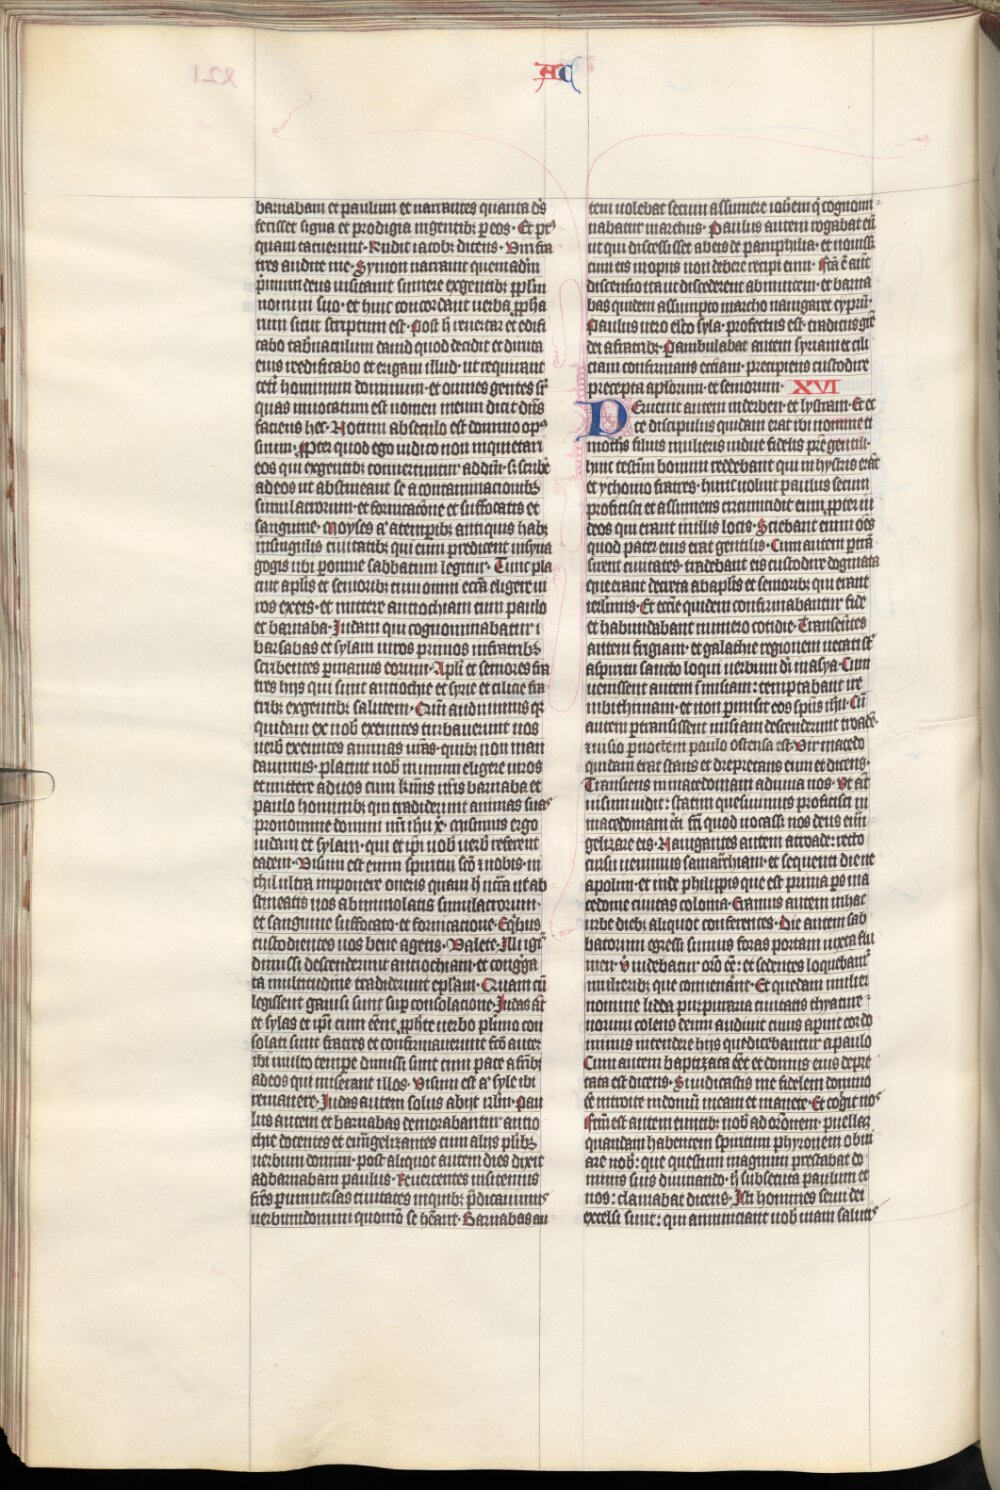 AC
barnabam et paulum et narrantes quanta ds̄
fecisset signa et prodigia ingentibꝫ ꝑ eos· Et pꝰ
quam tacuerunt· Rn̄dit iacobꝰ dicens· Viri fra
tres audite me· Symon narrauit quemadm̄
p̄mum deus uisitauit sumere exgentibꝫ pplm̄
nomini suo· et huic concordant uerba ꝓpha
rum sicut scriptum est· Post h̄ reuertar et edifi
cabo tab̄naculum dauid quod decidit et diruta
eius reedificabo et erigam illud· ut requirant
ceti hominum dominum· et omnes gentes sr̄
quas inuocatum est nomen meum dicit dn̄s
faciens hec· Notum aseculo est domino opꝰ
suum· ꝓpter quod ego iudico non inquietari
eos qui exgentibꝫ conuertuntur addm̄· sꝫ scribē
adeos ut abstineant se acontaminacionibꝫ
simulacrorum· et fornicacōne et suffocatis et
sanguine· moyses aꝰ atemp̄ibꝫ antiquis habꝫ
insingulis ciuitatibꝫ qui eum predicent insyna
gogis ubi ꝑ omne sabbatum legitur· Tunc pla
cuit apl̄is et senioribꝫ cum omni eccīa eligere ui
ros exeis· et mittere antiochiam cum paulo
et barnaba· Judam qui cognominabatur
barsabas et sylam uiros primos infratribꝫ
scribentes ꝑ manus eorum· Apl̄i et seniores fra
tres hijs qui sunt antiochie et syrie et cilicie fra
tribꝫ exgentibꝫ salutem· Qm̄ audiuimus qꝛ
quidam ex nob̄ exeuntes turbauerunt uos
uerb̄ euertentes animas uras· quibꝫ non man
dauimus· placuit nob̄ inunum eligere uiros
et mittere aduos cum kīmis nr̄is barnaba et
paulo hominibꝫ qui tradiderunt animas suas
pro nomine domini nr̄i ih̄u x̄· misimus ergo
iudam et sylam· qui et ip̄i uob̄ uerb̄ referent
eadem· Visum est enim spiritui sc̄o ⁊ nobis· ni
chil ultra imponere oneris quam h̄ nccīa ut ab
stineatis uos abimmolatis simulacrorum·
et sanguine suffocato· et fornicacione· Eqibus
custodientes uos bene agetis· Valete· Illi igr̄
dimissi descenderunt antiochiam· et congga
ta multitudine tradiderunt eplam· Quam cū
legissent gauisi sunt sup consolacione· Judas aūt
et sylas et ip̄i cum eēnt ꝓphēte uerbo plimo con
solati sunt fratres et confirmauerunt· fcō autem
ibi multo tempe dimissi sunt cum pace afribꝫ
adeos qui miserant illos· Visum est aꝰ syle ibi
remanere· Judas autem solus abijt irlm̄· Pau
lus autem et barnabas demorabantur antio
chie docentes et euāgelizantes cum alijs plibꝫ
uerbum domini· post aliquot autem dies dixit
adbarnabam paulus· Reuertentes uisitemus
frēs ꝑ uniuersas ciuitates inquibꝫ p̄dicauimus
uerbum domini quomō se hēant· Barnabas au
tem uolebat secum assumere ioh̄em q̄ cognomi
nabatur marchus· Paulus autem rogabat eū
ut qui discessisset abeis de pamphilia· et nonissꝫ
cum eis in opus non debere recipi eum· Fcā ē aūt
discensio ita ut discederent abinuicem· et barna
bas quidem assumpto marcho nauigaret cyprū·
Paulus uero electo syla· profectus est· traditus grē
dei afratribꝫ· Perambulabat autem syriam et cili
ciam confirmans eccīam· precipiens custodire
precepta aplorum· et seniorum· XVI
PEruenit autem inderben· et lystram· Et ec
ce discipulus quidam erat ibi nomine ti
motheus filius mulieris iudiee fidelis pr̄e gentili·
huic testim̄ bonum reddebant qui in lystris erāt
et ychonio fratres· hunc uoluit paulus secum
proficisci et assumens circumcidit eum ꝓpter iu
deos qui erant in illis locis· Sciebant enim oēs
quod pater eius erat gentilis· Cum autem ptrā
sirent ciuitates· tradebant eis custodire dogmata
que erant decreta abapl̄is et senioribꝫ qui erant
ierl̄imis· Et eccīe quidem confirmabantur fide
et habundabant numero cotidie· Transeūtes
autem frigiam· et galachie regionem uetati st̄
aspiritu sancto loqui uerbum dī inasya· Cum
uenissent autem īmisiam: temptabant ire
inbithiniam· et non ꝑmisit eos spūs ih̄u· Cū
autem ꝑtransissent misiam descenderunt troadē·
⁊ uisio ꝑ noctem paulo ostensa est· Vir macedo
quidam erat stans et deprecans eum et dicens·
Transiens in macedoniam adiuua nos· Vt aūt
uisum uidit: statim quesiuimus proficisci in
macedoniam c̄ti fc̄i quod uocassꝫ nos deus euā
gelizare eis· Nauigantes autem atroade: recto
cursu uenimus samatrhiam· et sequenti die ne
apolim· et inde philippis que est prima ꝑs ma
cedonie ciuitas colonia· Eramus autem in hac
urbe diebꝫ aliquot conferentes· Die autem sab
batorum egressi sumus foras portam iuxta flu
men· v̄ uidebatur orō eē: et sedentes loquebamr̄
mulieribꝫ que conuenānt· Et quedam mulier
nomine lidda purpuraria ciuitatis thyatire
norum colens deum audiuit cuius aꝑuit cor do
minus intendere hijs que dicebantur apaulo
Cum autem baptizata eēt et domus eius depre
cata est dicens· Si iudicastis me fidelem domino
eē introite in domū meam et manete· Et coegit nos
Fc̄m est autem euntibꝫ nob̄ ad orōnem· puellaꝫ
quandam habentem spiritum phytonem obui
are nob̄: que questum magnum prestabat do
minis suis diuinando· h̄ subsecuta paulum et
nos: clamabat dicens· Isti homines serui dei
excelsi sunt: qui annunciant uob̄ uiam salutis